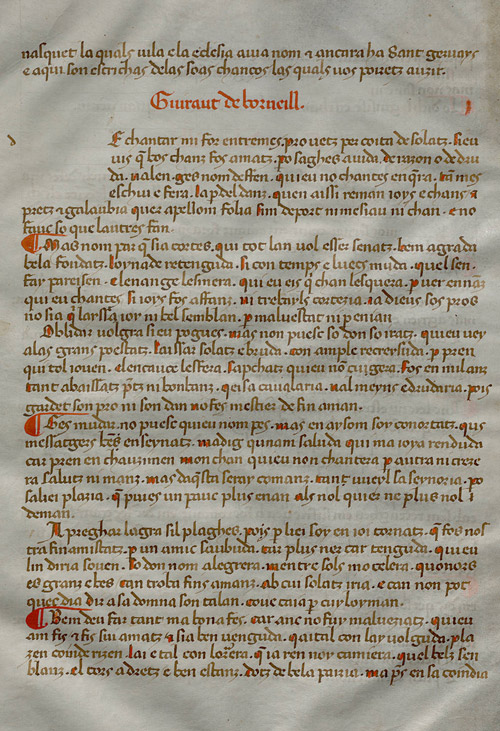 nasquet la quals uila e la eclesia auia nom ⁊ ancara ha Sant geruays
e aqui son escrichas delas soas chansos las quals uos poiretz auzir.
Giuraut de borneill.
E chantar mi for entremes. pro uetz per coita de solatz. si eu
uis q̄ bos chanz fos amatz. po sagues auida. de razon o de dru
da. ualen. ges nom deffen. qui eu no chantes enq̄ra. tā mes
eschiu e fera. la pdel danz. quen aissi reman ioys e chans ⁊
pretz ⁊ galaubia quez apellom folia sim deport ni mesiau ni chan. e no
fauc so que lautres fan.
Mas nom par q̄ sia cortes. qui tot lan uol esser senatz. bem agrada
bela foudatz. loynada retenguda. si con temps e luecs muda. quel sen.
far pareisen. e lenange lesmera. qui eu ei es q̄ chan lesquera. p uer ennāz
qui eu chantes si ioys fos affanz. ni trebayls cortezia. ia dieus sos pros
no sia q̄ layssa ior ni bel semblan. p malueistat ni p enian
Oblidar uolgra si eu pogues. mas non puesc so don so iratz. quieu uey
alas grans poestatz. laissar solatz e bruda. con ample recreisida. p pren
qui tol iouen. e lencauce lesfera. sapchatz quieu nō cuigera. fos en mil anz
tant abaissatz ptz ni bonbanz. q̄ ia caualaria. ual meyns e drudaria. pois
gardet son pro ni son dan no fes mestier de fin aman.
Ges mudar no puesc quieu nom pes. mas en aysom soy conortatz. qus
messatgers bes enseynatz. madig qunam saluda qui ma ioya renduda
car pren en chauzimen mon chan quieu non chantera p autra ni creze
ra salutz ni manz. mas daq̄sta seray comanz. tant uueyl sa seynoria. po
saliei plazia. q̄ pues un pauc plus enan als nol quier ne plus nol
deman.
A preghar lagra sil plagues. pois p liei soy en ioi tornatz. q̄ fos nos
tra finamistatz. p un amic saubuda. car plus ner car tenguda. qui eu
lin diria souen. so don nom alegrera. mentre sols mo celera. quonors
es granz e bes can troba fins amanz. ab cui solatz iria. e can non pot
ques dia dir a sa domna son talan. coue caia p cuy lo yman.
Bem deu far tant ma bona fes. car anc no fuy maluaziatz. quieu
am fis ⁊ fis sui amatz ⁊ sia ben uenguda. q̄ aital con lay uolguda. pla
zen conderizen. lai e tal con lozera. q̄ ia ren noy camiera. quel belz sen
blanz. el cors adretz e ben estanz. dotz de bela paria. ma ps en sa coindia